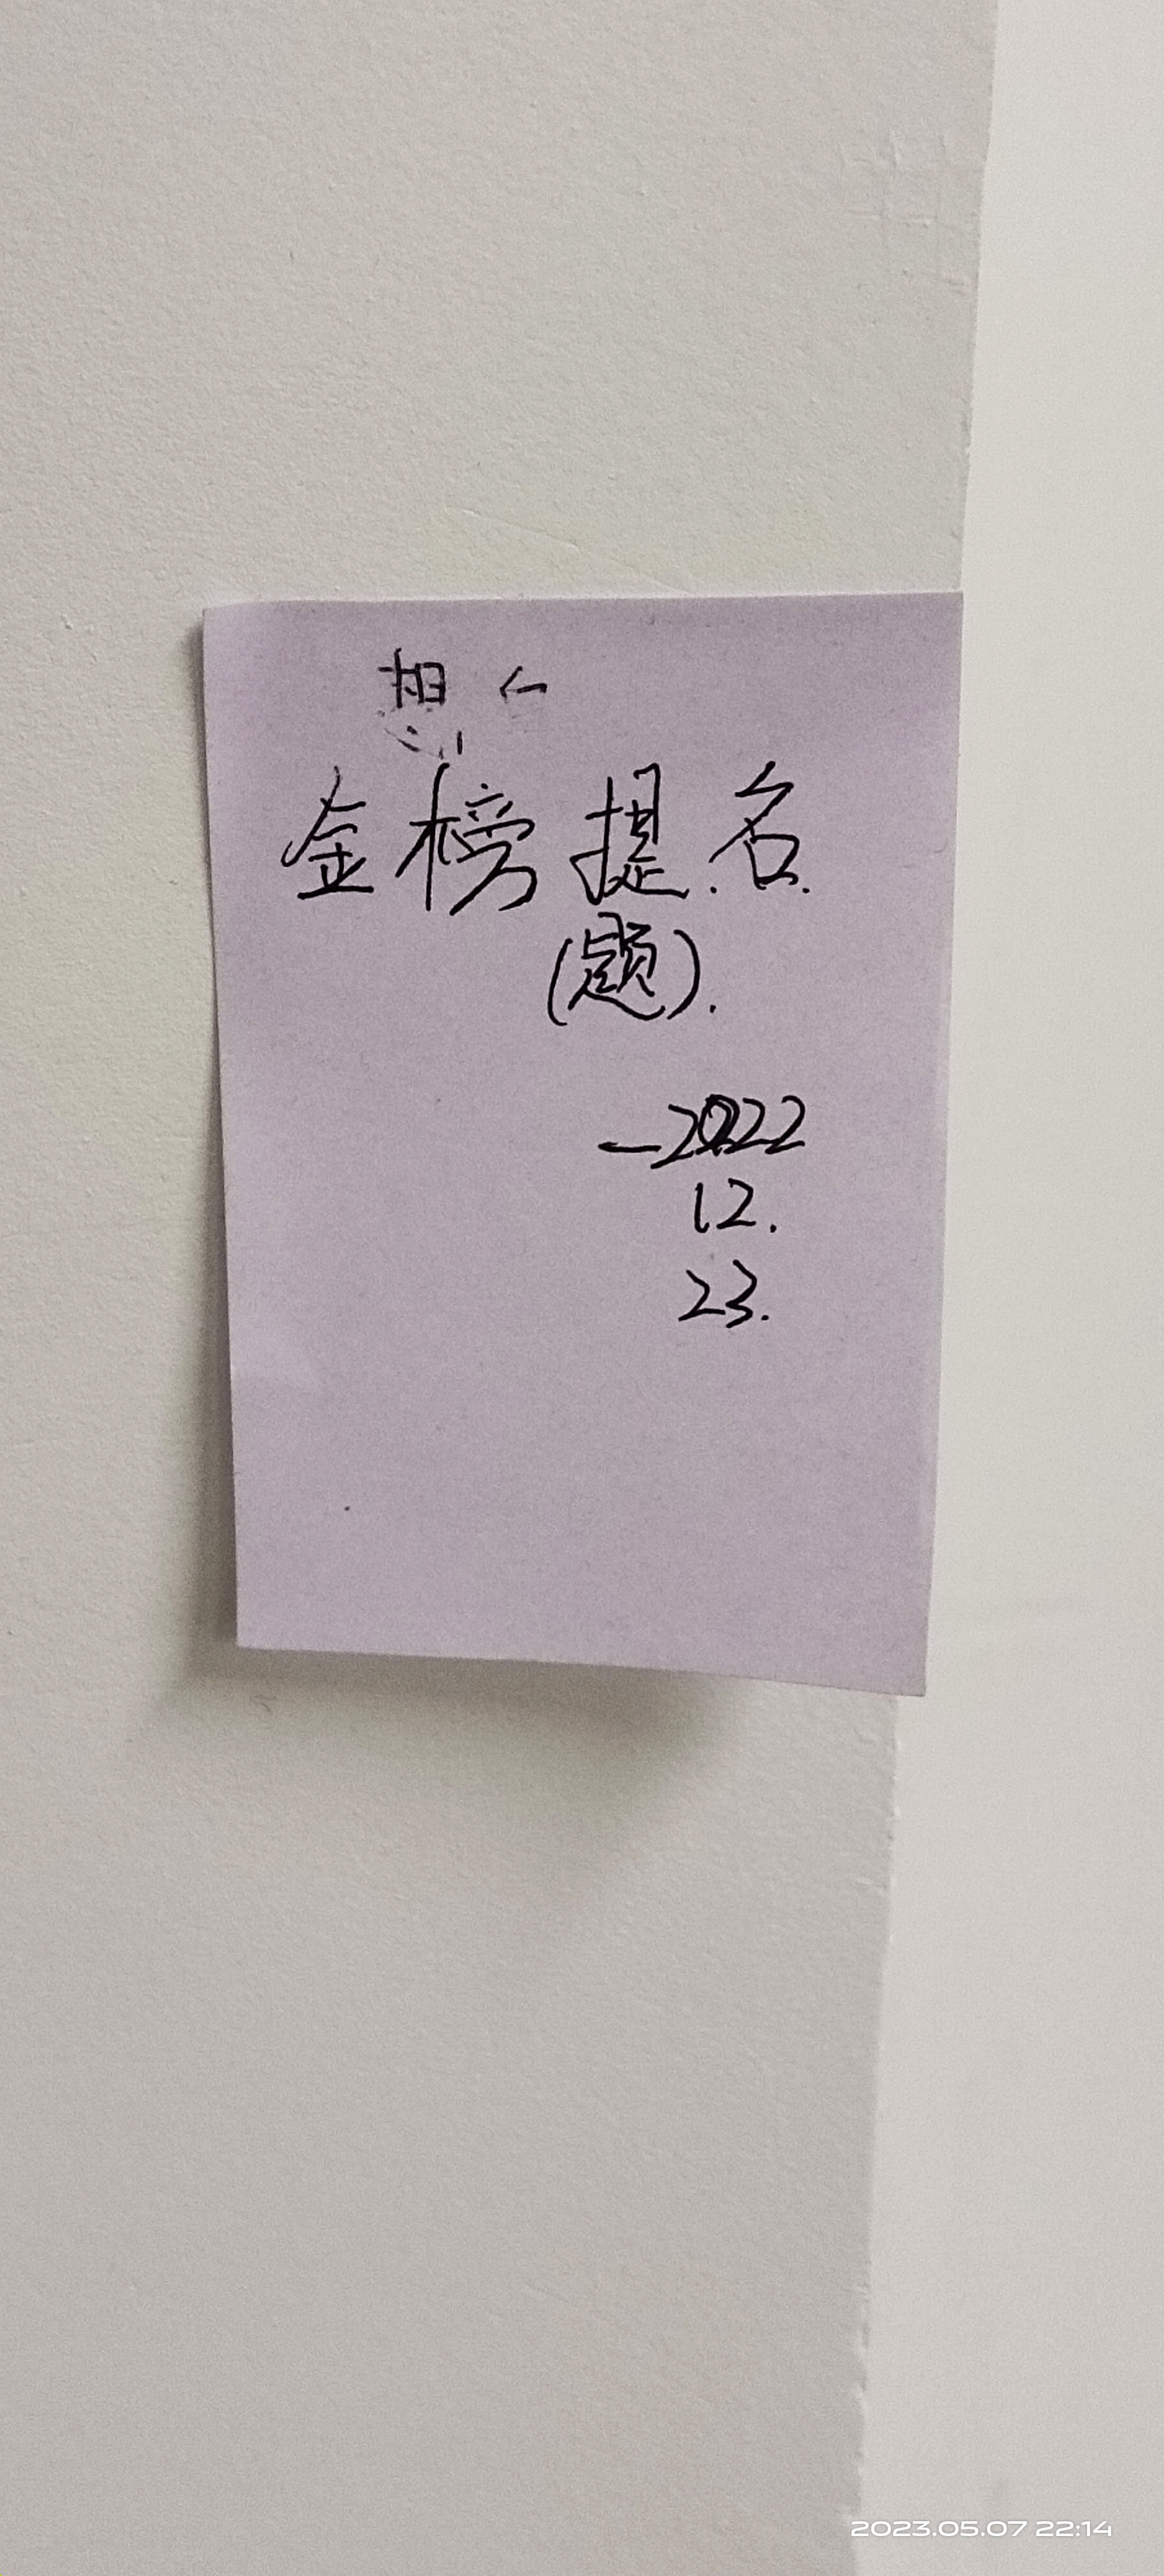 金榜提名
(题).
—2022
12.
23.
2023.05.07 22:14